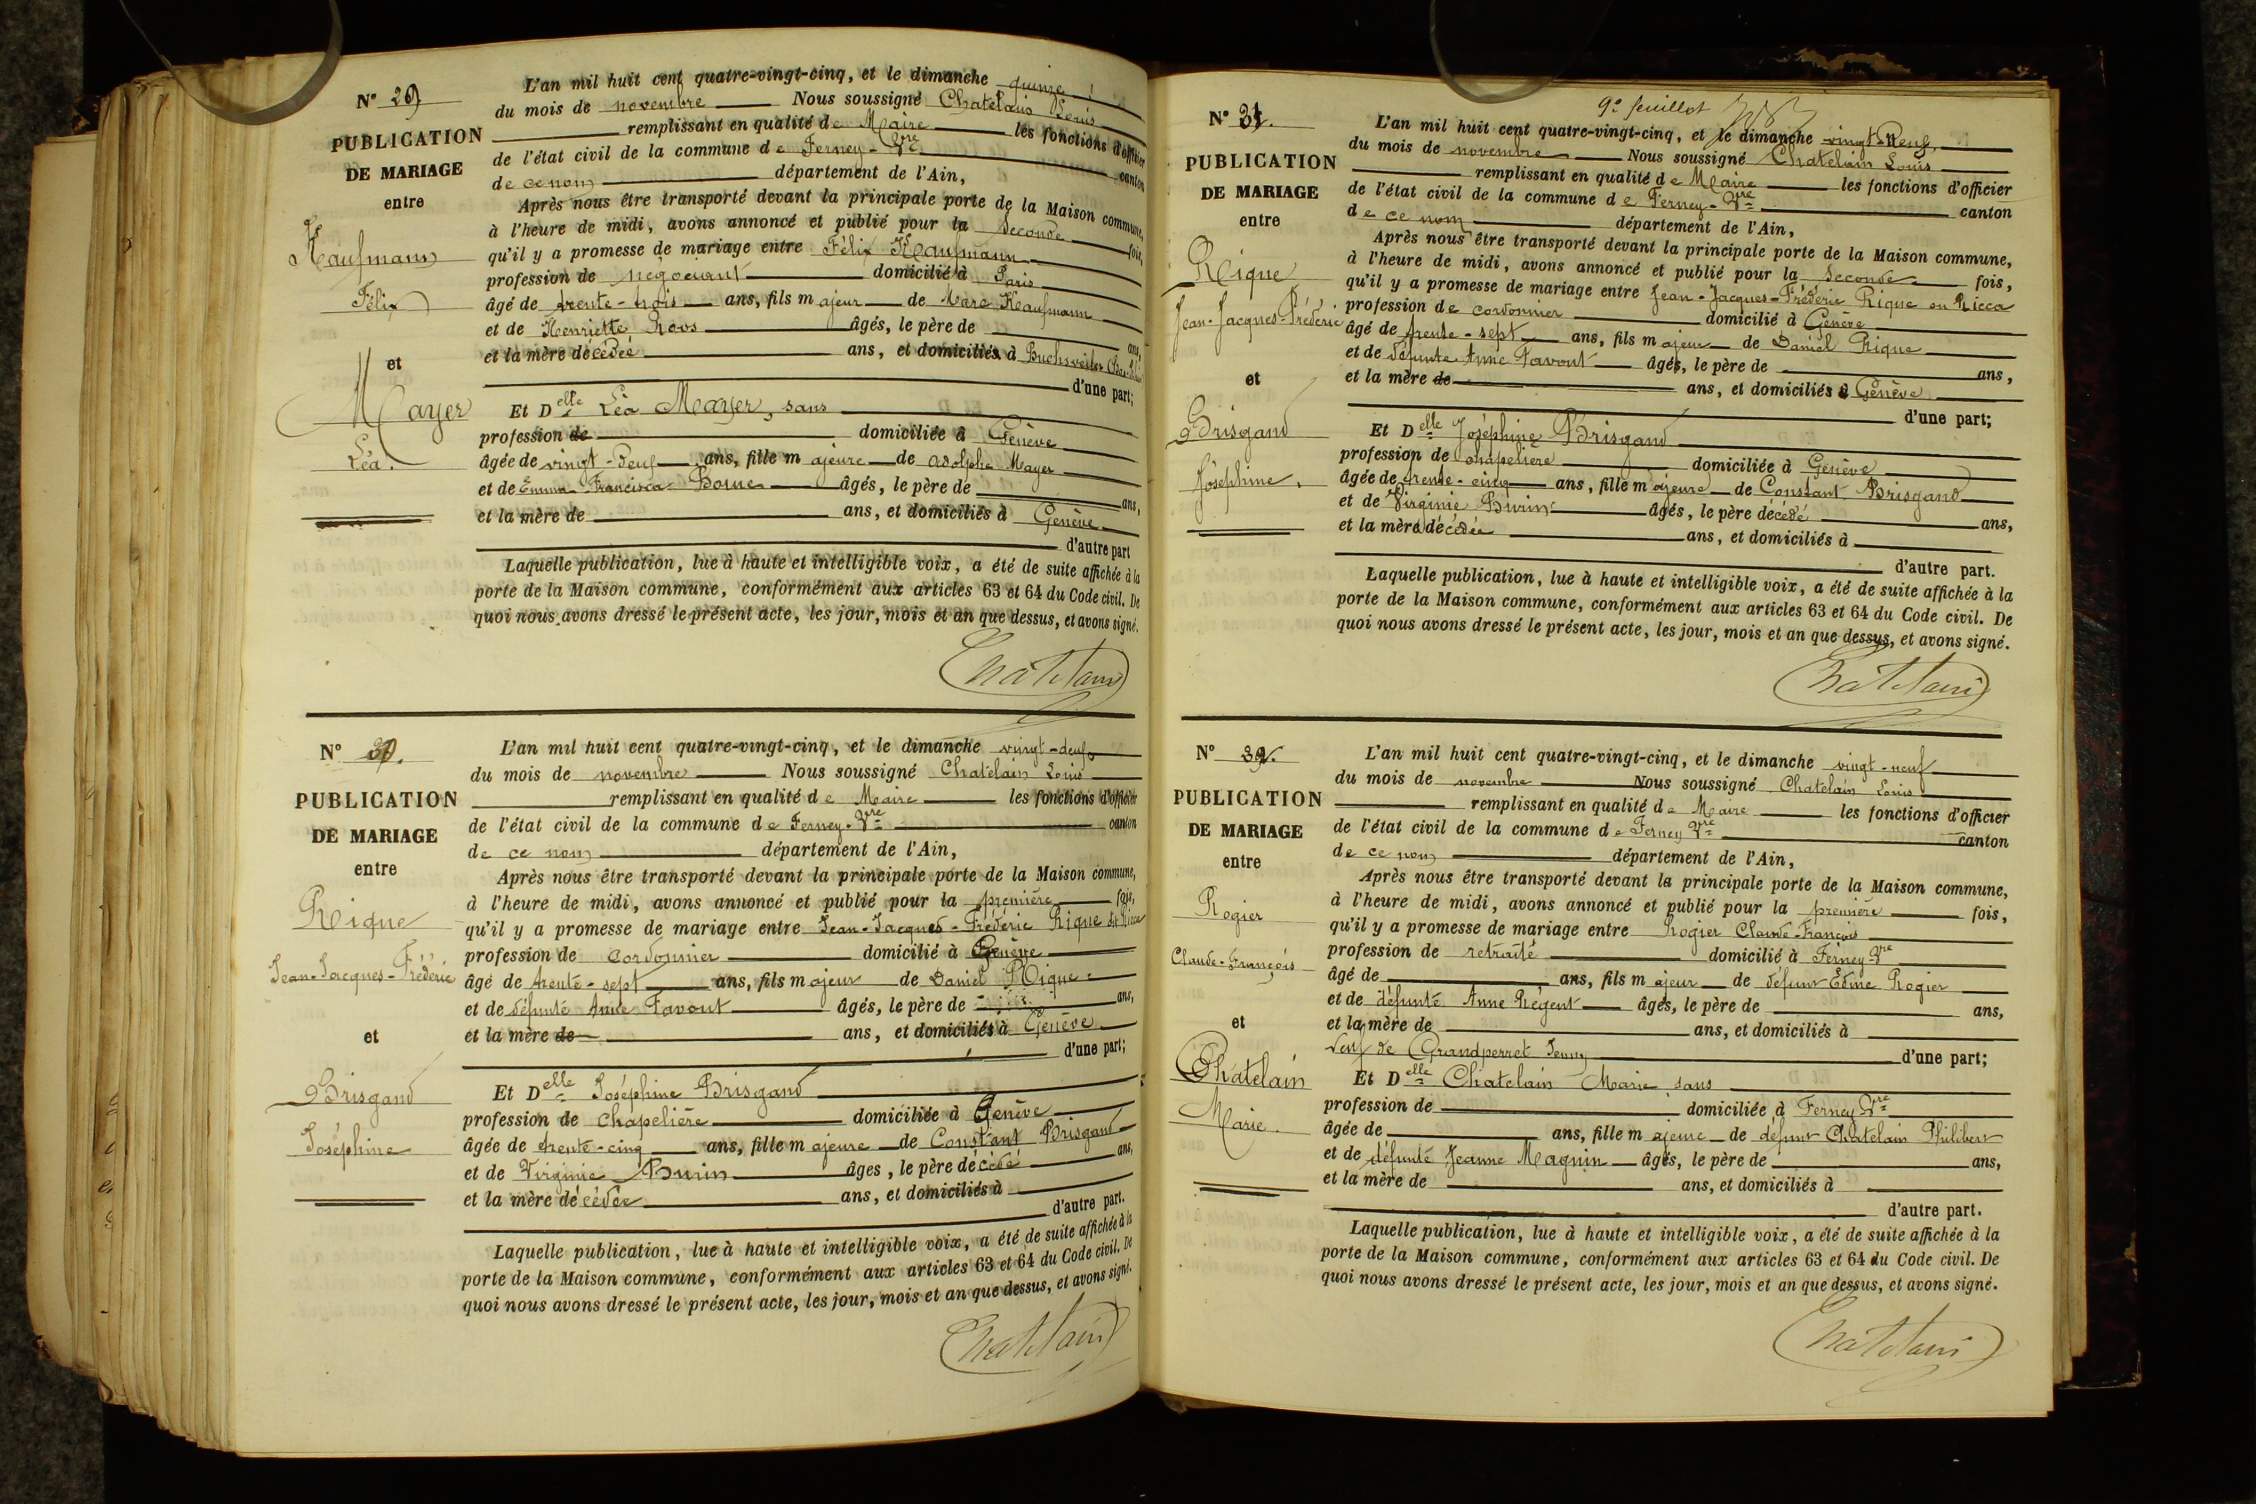 N° 29
PUBLICATION
DE MARIAGE
entre
Kaufmann
Félix
et
Mayer
Léa.
L'an mil huit cent quatre-vingt-cinq, et le dimanche quinze
du mois de novembre Nous soussigné Chatelain Louis
remplissant en qualité de Maire les fonctions d'officier
de l'état civil de la commune de Ferney-Vre canton
de ce nom département de l'Ain,
Après nous être transporté devant la principale porte de la Maison commune,
à l'heure de midi, avons annoncé et publié pour la seconde fois,
qu'il y a promesse de mariage entre Félix Kaufmann
profession de négociant domicilié à Paris
âgé de trente-trois ans, fils majeur de Marc Kaufmann
et de Henriette Roos âgés, le père de ans,
et la mère décédée ans, et domiciliés à Buchsweiler
d'une part;
Et Delle Léa Mayer, sans
profession de domiciliée à Genève
âgée de vingt-deux ans, fille majeure de Adolphe Mayer
et de Emma-Francisca âgés, le père de ans,
et la mère de ans, et domiciliés à Genève
d'autre part
Laquelle publication, lue à haute et intelligible voix, a été de suite affichée à la
porte de la Maison commune, conformément aux articles 63 et 64 du Code civil. De
quoi nous avons dressé le présent acte, les jour, mois et an que dessus, et avons signé.
Chatelain
N° 30.
PUBLICATION
DE MARIAGE
entre
Rique
Jean-Jacques-Frédéric
et
Brisgand
Joséphine
L'an mil huit cent quatre-vingt-cinq, et le dimanche vingt-deux
du mois de novembre Nous soussigné Chatelain Louis
remplissant en qualité de Maire les fonctions d'officier
de l'état civil de la commune de Ferney-Vre canton
de ce nom département de l'Ain,
Après nous être transporté devant la principale porte de la Maison commune,
à l'heure de midi, avons annoncé et publié pour la première fois,
qu'il y a promesse de mariage entre Jean-Jacques-Frédéric Rique
profession de cordonnier domicilié à Genève
âgé de trente-sept ans, fils majeur de Daniel Rique
et de défunte Anne Favout âgés, le père de ans,
et la mère de ans, et domiciliés à Genève
d'une part;
Et Delle Joséphine Brisgand
profession de chapelière domiciliée à Genève
âgée de trente-cinq ans, fille majeure de Constant Brisgand
et de Virginie Burin âges, le père décédé ans,
et la mère décédée ans, et domiciliés à
d'autre part.
Laquelle publication, lue à haute et intelligible voix, a été de suite affichée à la
porte de la Maison commune, conformément aux articles 63 et 64 du Code civil. De
quoi nous avons dressé le présent acte, les jour, mois et an que dessus, et avons signé.
Chatelain
9e feuillet
N° 31.
PUBLICATION
DE MARIAGE
entre
Rique
Jean-Jacques-Frédéric
et
Brisgand
Joséphine.
L'an mil huit cent quatre-vingt-cinq, et le dimanche vingt-Neuf
du mois de novembre Nous soussigné Chatelain Louis
remplissant en qualité de Maire les fonctions d'officier
de l'état civil de la commune de Ferney-Vre canton
de ce nom département de l'Ain,
Après nous être transporté devant la principale porte de la Maison commune,
à l'heure de midi, avons annoncé et publié pour la seconde fois,
qu'il y a promesse de mariage entre Jean-Jacques-Frédéric Rique ou Ricca
profession de cordonnier domicilié à Genève
âgé de trente-sept ans, fils majeur de Daniel Rique
et de défunte Anne Favout âgés, le père de ans,
et la mère de ans, et domiciliés à Genève
d'une part;
Et Delle Joséphine Brisgand
profession de chapelière domiciliée à Genève
âgée de trente-cinq ans, fille majeure de Constant Brisgand
et de Virginie Burin âgés, le père décédé ans,
et la mère décédée ans, et domiciliés à
d'autre part.
Laquelle publication, lue à haute et intelligible voix, a été de suite affichée à la
porte de la Maison commune, conformément aux articles 63 et 64 du Code civil. De
quoi nous avons dressé le présent acte, les jour, mois et an que dessus, et avons signé.
Chatelain
N° 32.
PUBLICATION
DE MARIAGE
entre
Rogier
Claude-François
et
Chatelain
Marie.
L'an mil huit cent quatre-vingt-cinq, et le dimanche vingt-neuf
du mois de novembre Nous soussigné Chatelain Louis
remplissant en qualité de Maire les fonctions d'officier
de l'état civil de la commune de Ferney Vre canton
de ce nom département de l'Ain,
Après nous être transporté devant la principale porte de la Maison commune,
à l'heure de midi, avons annoncé et publié pour la première fois,
qu'il y a promesse de mariage entre Rogier Claude-François
profession de retraité domicilié à Ferney-Vre
âgé de ans, fils majeur de défunt Edme Rogier
et de défunte Anne Régent âgés, le père de ans,
et la mère de ans, et domiciliés à
veuf de Grandperret Jenny d'une part;
Et Delle Chatelain Marie sans
profession de domiciliée à Ferney Vre
âgée de ans, fille majeure de défunt Chatelain Philibert
et de défunte Jeanne Magnin âgés, le père de ans,
et la mère de ans, et domiciliés à
d'autre part.
Laquelle publication, lue à haute et intelligible voix, a été de suite affichée à la
porte de la Maison commune, conformément aux articles 63 et 64 du Code civil. De
quoi nous avons dressé le présent acte, les jour, mois et an que dessus, et avons signé.
Chatelain